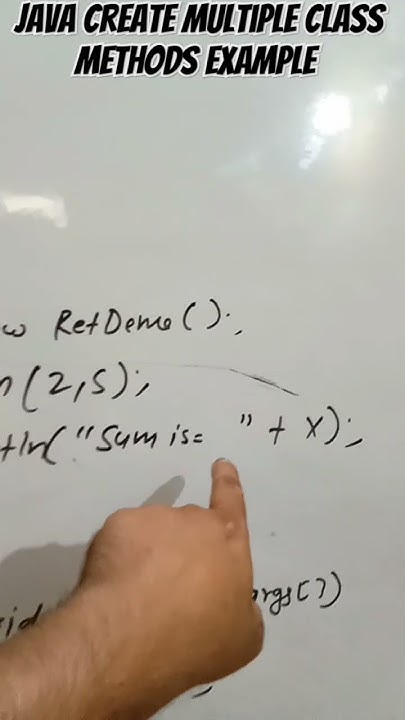 JAVA CREATE MULTIPLE CLASS
METHODS EXAMPLE
w RetDemo();
n(2,5);
tln("Sum is= " + x);
args[])